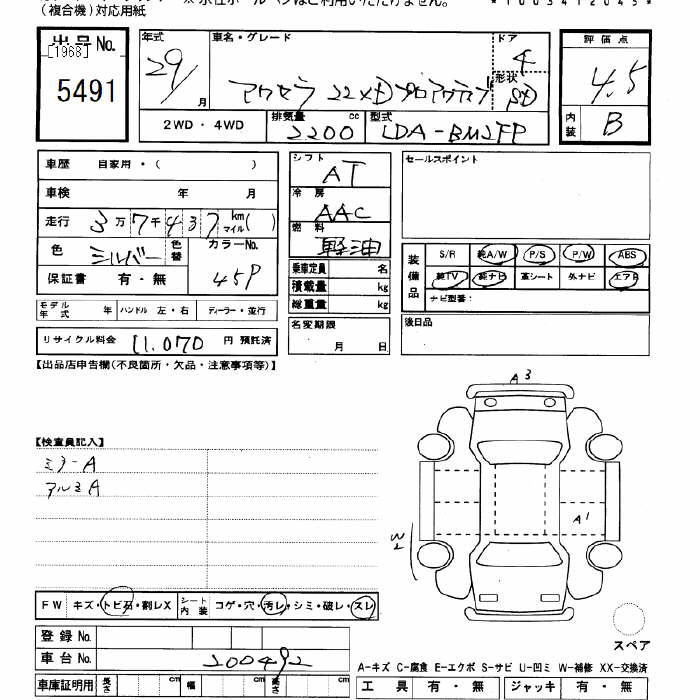 (複合機)対応用紙
*1003412045*
出品No.
[1968]
5491
年式
29/
月
車名・グレード
アクセラ 22XDプロアクティブ
ドア
4
形状
SD
2WD・4WD
排気量 cc
2200
型式
LDA-BM2FP
評価点
4.5
内装
B
車歴 自家用・( )
車検 年 月
走行 3万7千437 km マイル( )
色 シルバー 色替 カラーNo.
45P
保証書 有・無
モデル年式 年 ハンドル 左・右 ディーラー・並行
リサイクル料金 11.070 円 預託済
シフト
AT
冷房
AAC
燃料
軽油
乗車定員 名
積載量 kg
総重量 kg
名変期限
月 日
セールスポイント
装備品
S/R 純A/W P/S P/W ABS
純TV 純ナビ 革シート 外ナビ エアB
ナビ型番:
後日品
【出品店申告欄(不良箇所・欠品・注意事項等)】
【検査員記入】
ミラーA
アルミA
A3
A1
W2
スペア
FW キズ・トビ石・割レX シート内装 コゲ・穴・汚レ・シミ・破レ・スレ
登録No.
車台No. 200492
車庫証明用 長さ cm 幅 cm 高さ cm
A-キズ C-腐食 E-エクボ S-サビ U-凹ミ W-補修 XX-交換済
工具 有・無 ジャッキ 有・無